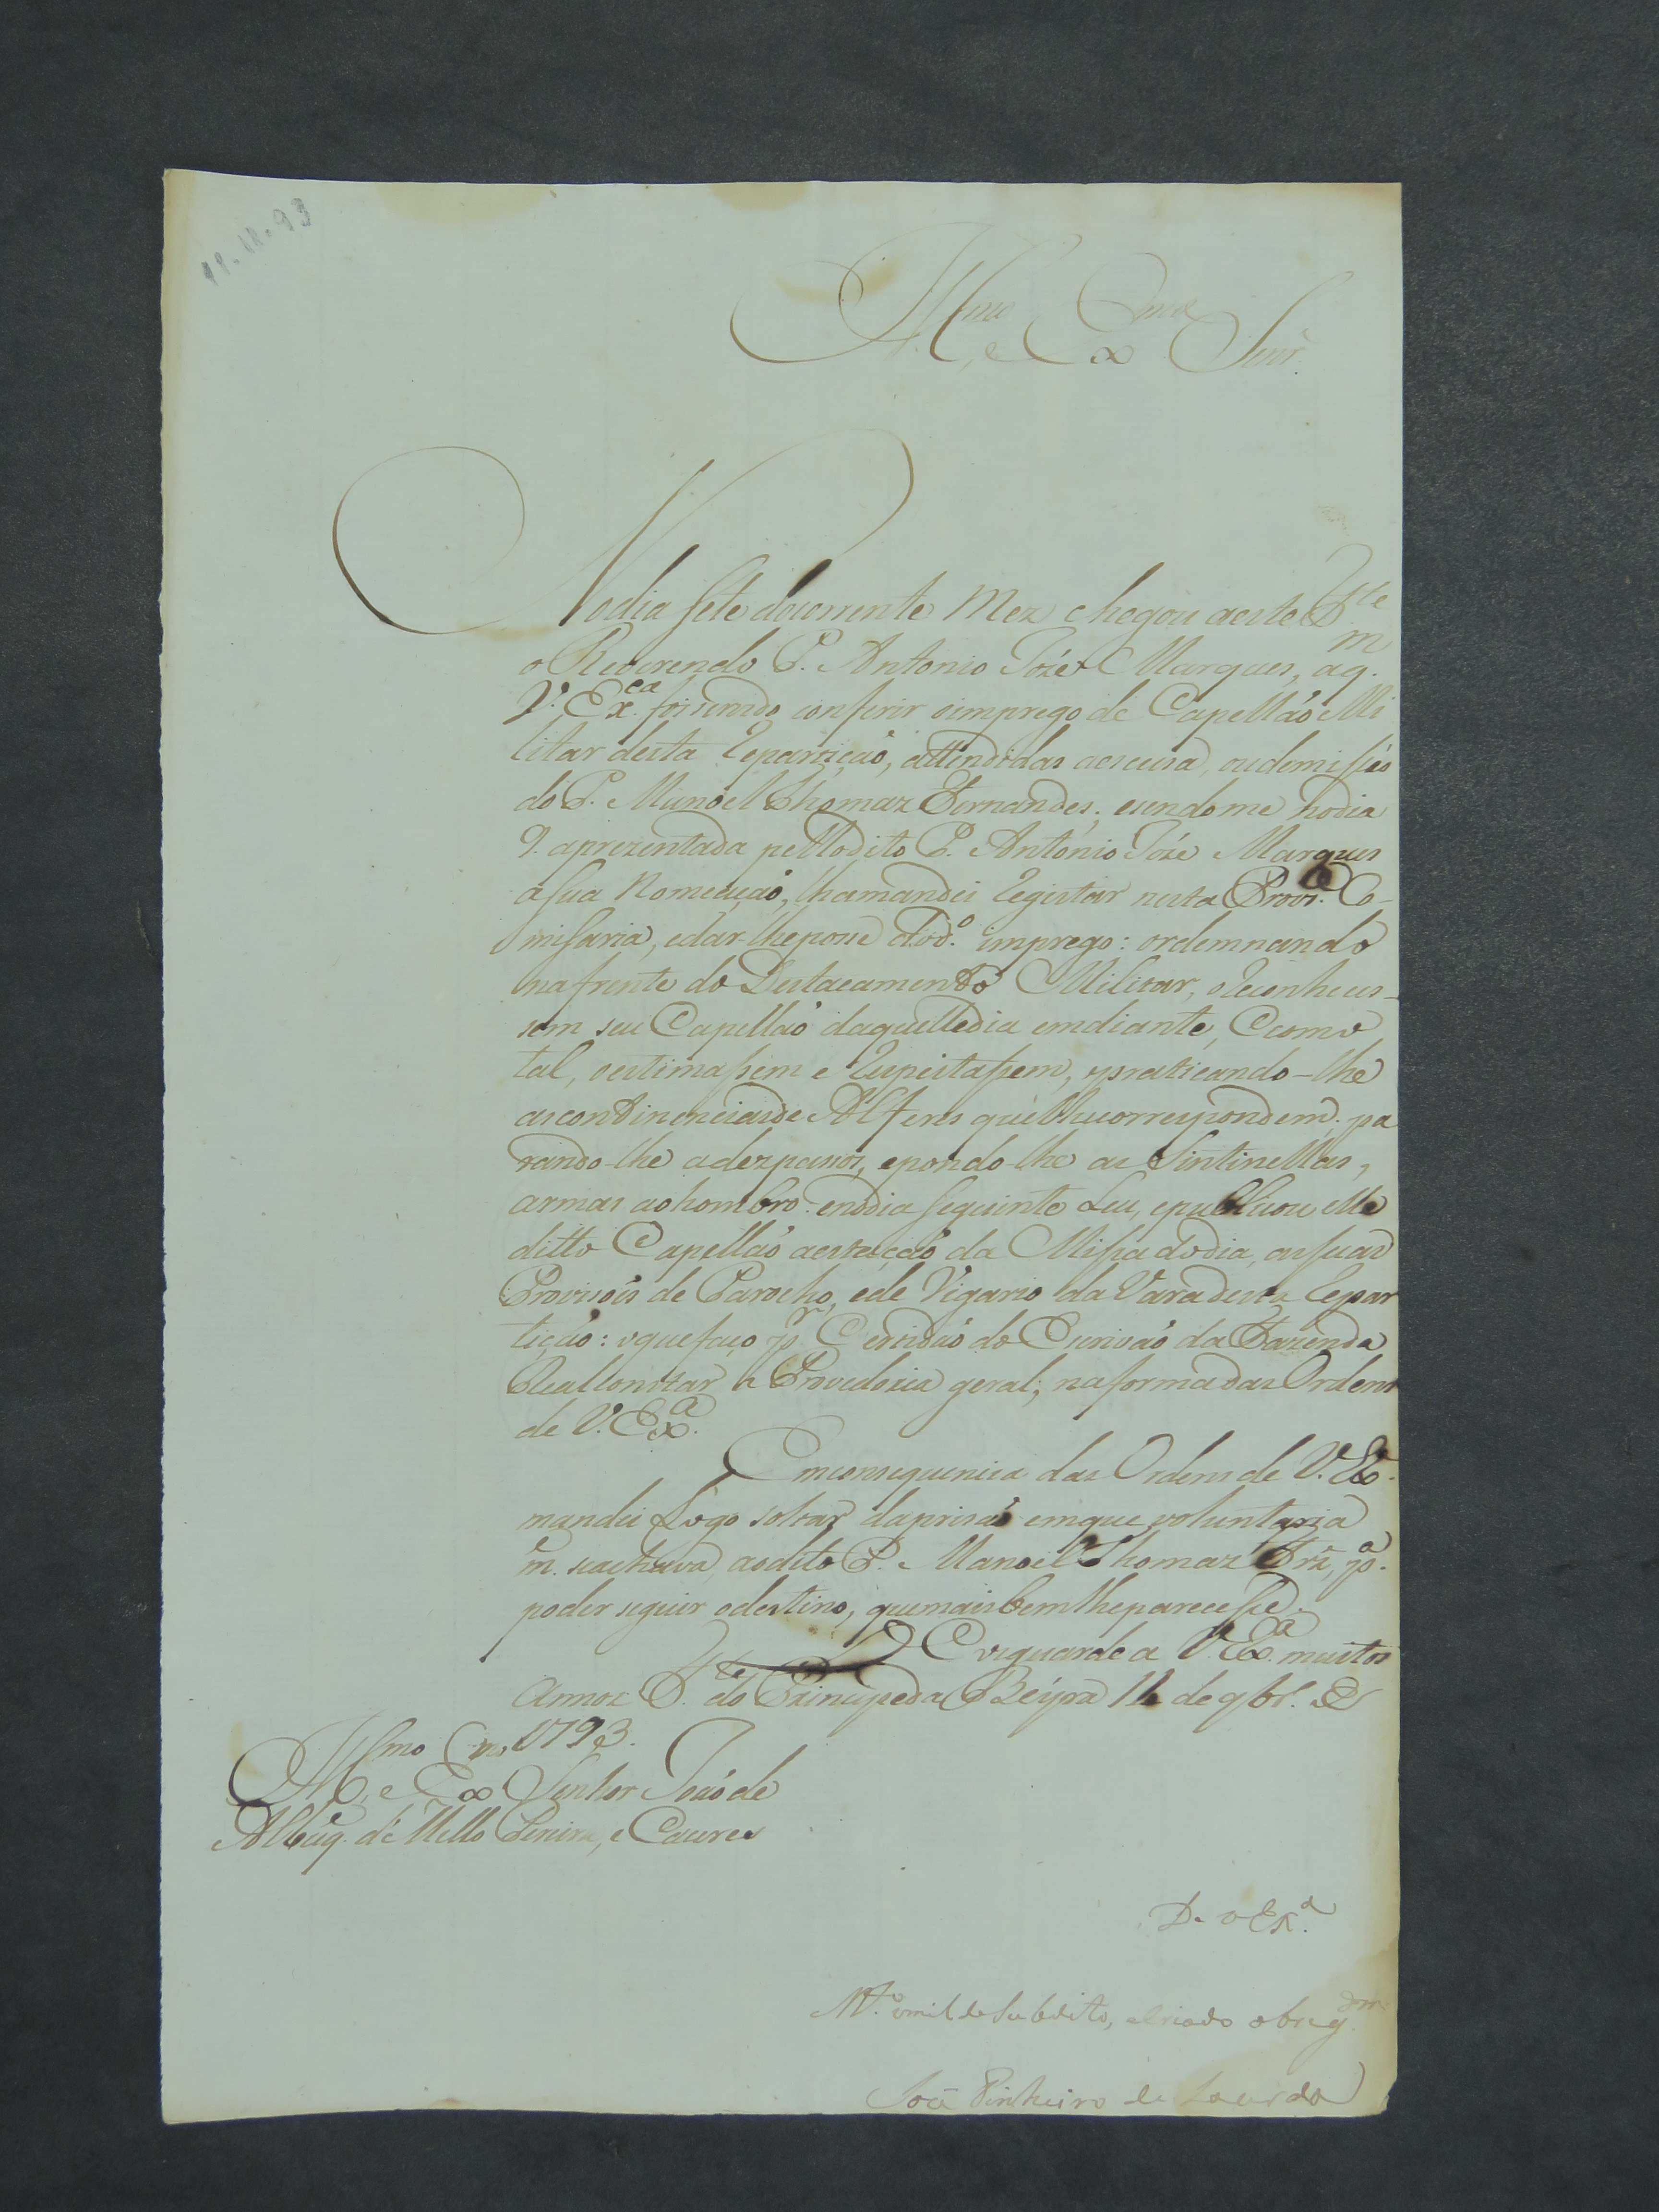 11-11-93
Illmo e Exmo Senr.
No dia sete docorrente Mez chegou aeste F.te
o Reverendo P. Antonio Jozé Marques, aq.m
V. Ex.cia foi servido conferir oimprego de Capellaõ Mi
litar desta Repartiçaõ, attendidas aescusa, oudemissaõ
do P. Manoel Thomaz Fernandes; esendome nodia
9. aprezentada pellodito P. António Józe Marques
asua Nomeaçaõ, lhamandei Registar nesta Prov.r Co-
misaria, edar-lheposse dod.o imprego: ordemnando
nafrente do Destacamento Militar, oReconheces-
sem seu Capellaõ daquelledia emdiante, Ecomo
tal, oestimassem e Respeitassem, praticando-lhe
ascontinenciasde Alferes quélhecorrespondem; pa
rando-lhe adezpassos, epondo-lhe as Sintinellas,
armas aohombro: enodia seguinte Leu, epublicou elle
ditto Capellaõ aestaçaõ da Missa dodia, assuas
Provisois de Parocho, ede Vigario da Varadesta Repar
tiçaõ: oquefaço p.r Certidaõ do Escrivaõ da Fazenda
Realconstar a Provedoria geral; naformadas Ordens
de V. Ex.a
Emconsequencia das Ordens de V. Ex.
mandei Logo soltar daprisaõ emque voluntaria
m. seachava, aodito P. Manoel Thomaz Frz, p.a
poder seguir odestino, quemaisbemlheparecesse.
D.s guarde a V. Ex.a muitos
Annos F.te do Principeda Beÿra 11 de 9br.o de
1793.
Illmo e Exmo Senhor Joaõ de
Albuq. de Mello Pereira, e Caceres
De V Ex.a
M.to omilde Subdito, eCriado obrig.dm.o
José Pinheiro de Lacerda